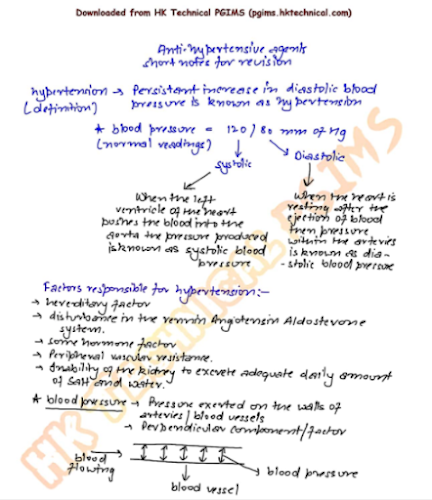 Downloaded from HK Technical PGIMS (pgims.hktechnical.com)
Anti-hypertensive agents
short notes for revision
hypertension → Persistent increase in diastolic blood
(definition) pressure is known as hypertension
* blood pressure = 120/80 mm of Hg
(normal readings)
systolic
Diastolic
When the left
ventricle of the heart
pushes the blood into the
aorta the pressure produced
is known as systolic blood
pressure
When the heart is
resting after the
ejection of blood
then pressure
within the arteries
is known as dia-
-stolic blood pressure
Factors responsible for hypertension:-
→ hereditary factor
→ disturbance in the rennin Angiotensin Aldosterone
system.
→ some hormone factor
→ Peripheral vascular resistance.
→ Inability of the kidney to excrete adequate daily amount
of salt and water.
* blood pressure → Pressure exerted on the walls of
arteries/blood vessels
→ Perpendicular component/factor
blood
flowing
blood pressure
blood vessel
HK TECHNICAL PGIMS